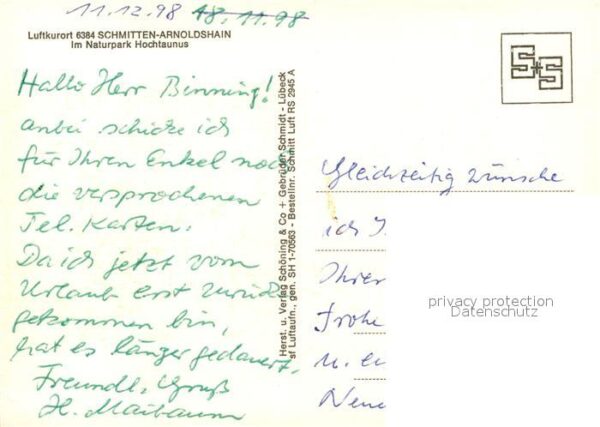 11.12.98 18.11.98
Luftkurort 6384 SCHMITTEN-ARNOLDSHAIN
Im Naturpark Hochtaunus
Hallo Herr Binning!
anbei schicke ich
für Ihren Enkel noch
die versprochenen
Tel. Karten.
Da ich jetzt vom
Urlaub erst zurück
gekommen bin,
hat es länger gedauert.
Freundl. Gruß
H. Maibaum
Herst. u. Verlag Schöning & Co + Gebrüder Schmidt - Lübeck
sf Luftaufn., gen. SH 1-70563 - Bestellnr. Schmitt Luft RS 2945 A
S+S
Gleichzeitig wünsche
ich
Ihrer
Frohe
u. ei
Neue
privacy protection
Datenschutz